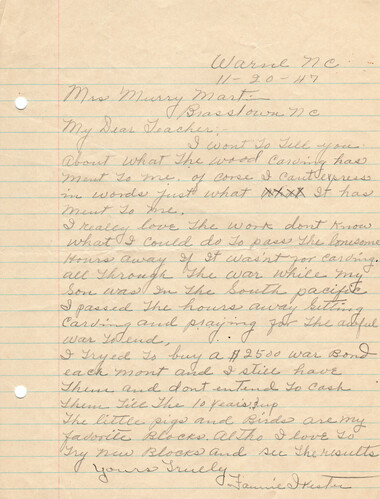 Warne NC
11-20-47
Mrs Murry Mart.
Brasstown NC
My Dear Teacher,
I wont To Tell you
about What The Wood Carving has
ment To me. of corse I Cant express
in words just what xxxx It has
ment To me.
I really love The Work dont Know
What I Could do To pass The lonesome
Hours away If It Wasn't for Carving.
all Through The War While my
Son was In The South pacific
I passed The hours away Sitting
Carving and praying for The awful
War To end.
I Tryed To buy a $2500 War Bond
each mont and I still have
Them and dont entend To Cash
Them Till The 10 years up
The little pigs and Birds are my
favorite Blocks. Altho I love To
Try new Blocks and see The results
Yours Truely
Fannie Ivester